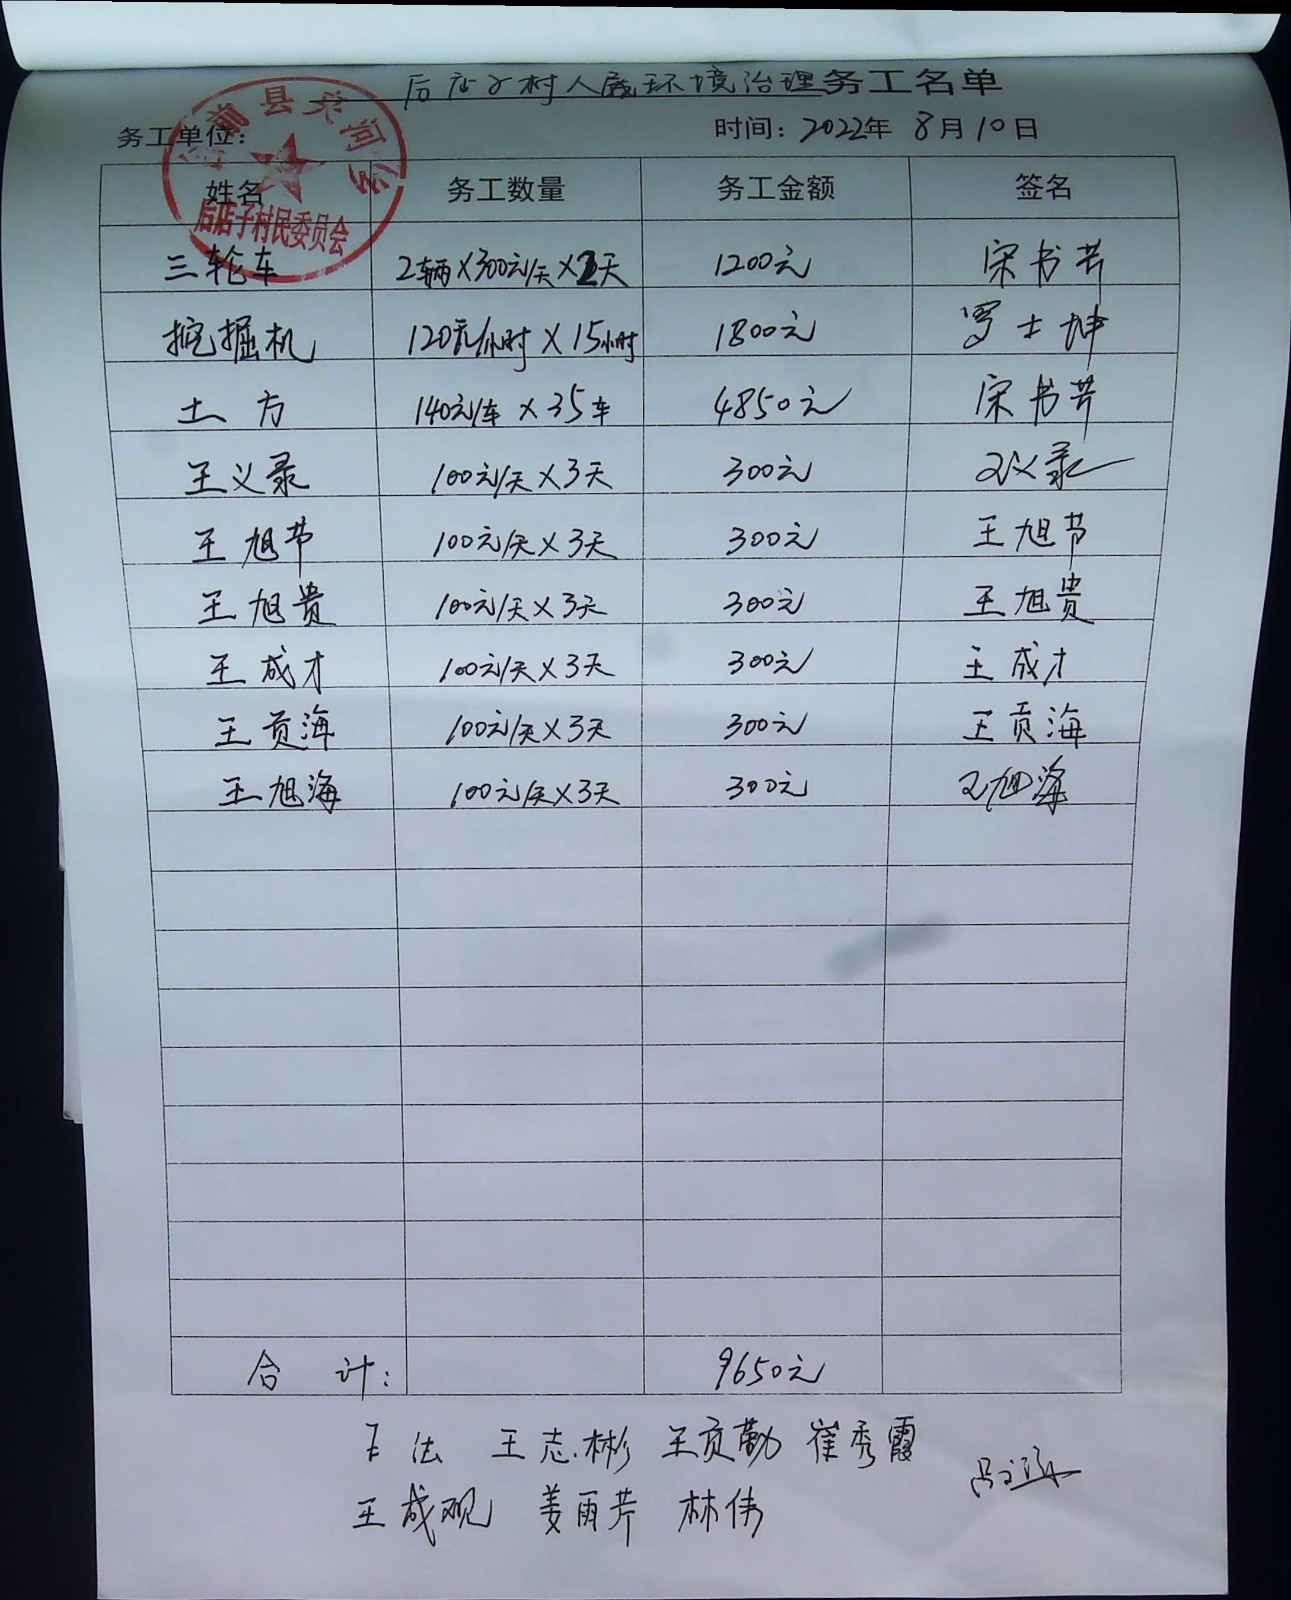 后店子村人居环境治理务工名单
务工单位：
时间：2022年 8月10日
县
后店子村民委员会
姓名 务工数量 务工金额 签名
三轮车 2辆×300元/天×2天 1200元 宋书芹
挖掘机 120元/小时×15小时 1800元 罗士坤
土方 140元/车×35车 4850元 宋书芹
王义录 100元/天×3天 300元 王义录
王旭节 100元/天×3天 300元 王旭节
王旭贵 100元/天×3天 300元 王旭贵
王成才 100元/天×3天 300元 王成才
王贡海 100元/天×3天 300元 王贡海
王旭海 100元/天×3天 300元 王旭海
合计： 9650元
王法 王志彬 王贡勤 崔秀霞
王成观 姜雨芹 林伟